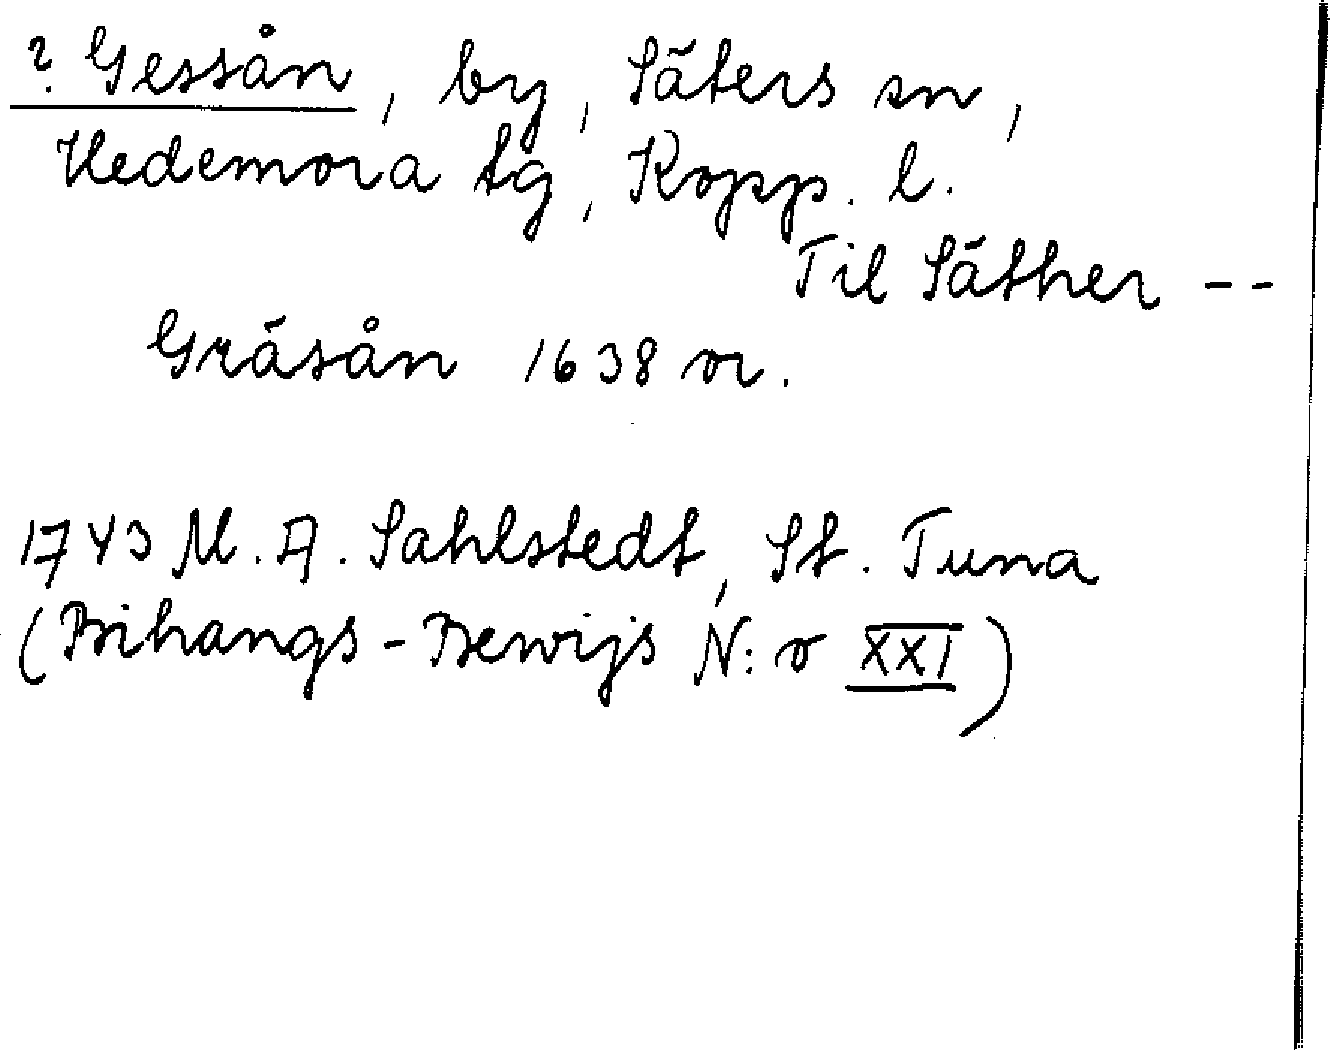 ? Gessån, by, Säters sn,
Hedemora tg, Kopp. l.
Til Säther --
Gräsån 1638 or.
1743 M. A. Sahlstedt, St. Tuna
(Bihangs-Bewijs N:o XXI)